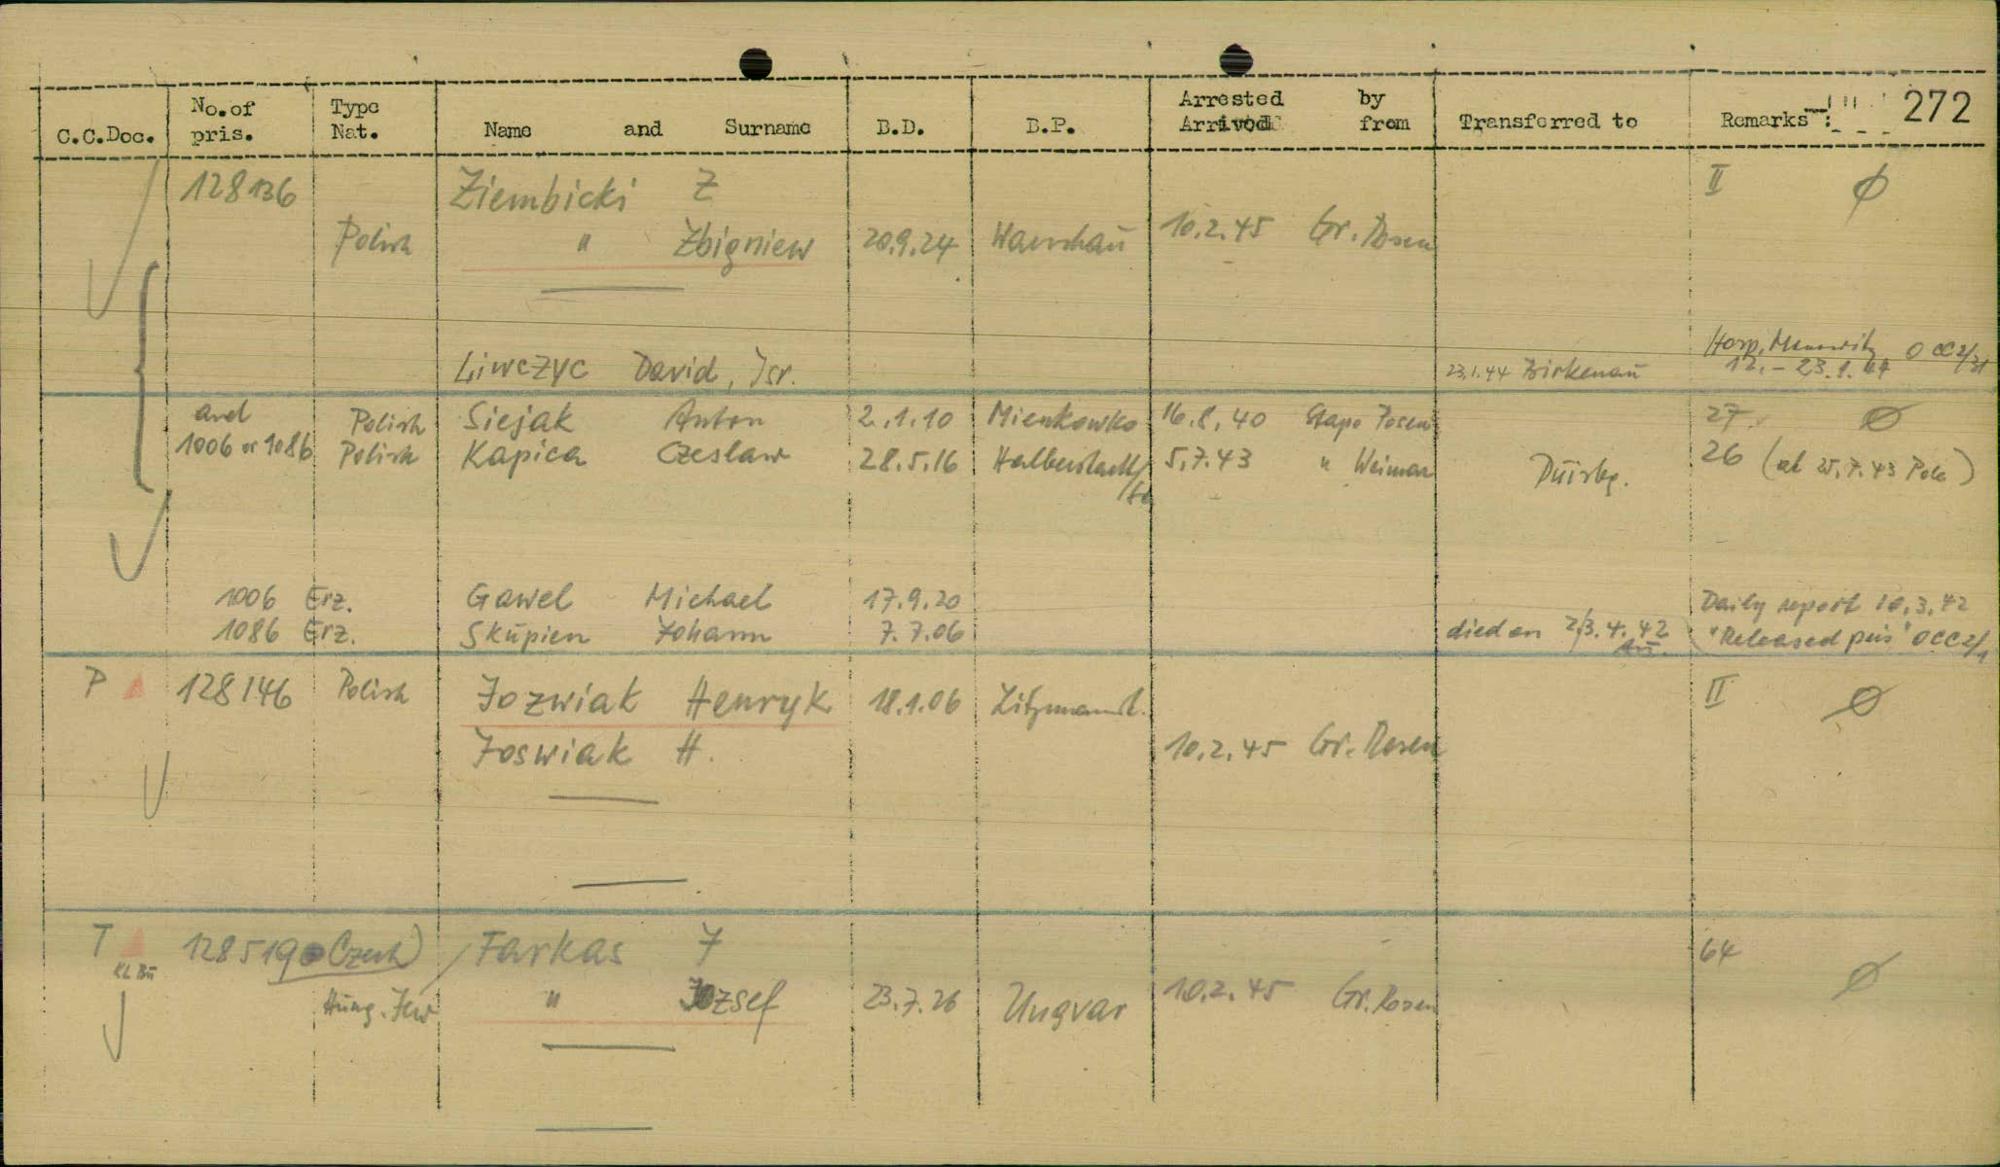 C.C.Doc. No. of pris. Type Nat. Name and Surname B.D. B.P. Arrested by Arrived from Transferred to Remarks : 272
128136 Ziembicki Z II Ø
Polish " Zbigniew 20.9.24 Warschau 10.2.45 Gr. Rosen
Liwczyc David, Isr. 23.1.44 Birkenau Hosp. Monowitz 12.-23.1.44 OCC2/31
and Polish Siejak Anton 2.1.10 Mienkowko 16.8.40 Stapo Posen 27. Ø
1006 or 1086 Polish Kapica Czeslaw 28.5.16 Halberstadt/ 5.7.43 " Weimar Duisbg. 26 (ab 25.7.43 Pole)
1006 Erz. Gawel Michael 17.9.20 Daily report 10.3.42
1086 Erz. Skupien Johann 7.7.06 died on 2/3.4.42 Au. "Released pris" OCC2/1
P 128146 Polish Jozwiak Henryk 18.1.06 Litzmannst. II Ø
Joswiak H. 10.2.45 Gr. Rosen
T 128519 Czech Farkas J 64
KL Bu Hung. Jew " Jozsef 23.7.26 Ungvar 10.2.45 Gr. Rosen Ø